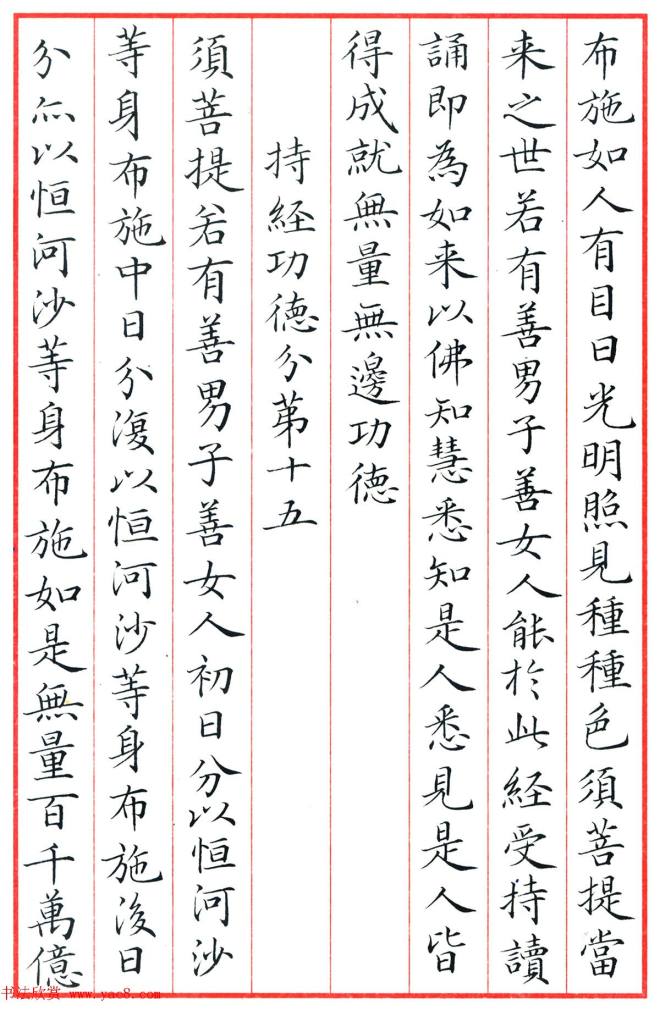 布施如人有目日光明照見種種色須菩提當
来之世若有善男子善女人能於此經受持讀
誦即為如来以佛知慧悉知是人悉見是人皆
得成就無量無邊功德
持經功德分苐十五
須菩提若有善男子善女人初日分以恒河沙
等身布施中日分復以恒河沙等身布施後日
分亦以恒河沙等身布施如是無量百千萬億
书法欣赏 www.yac8.com